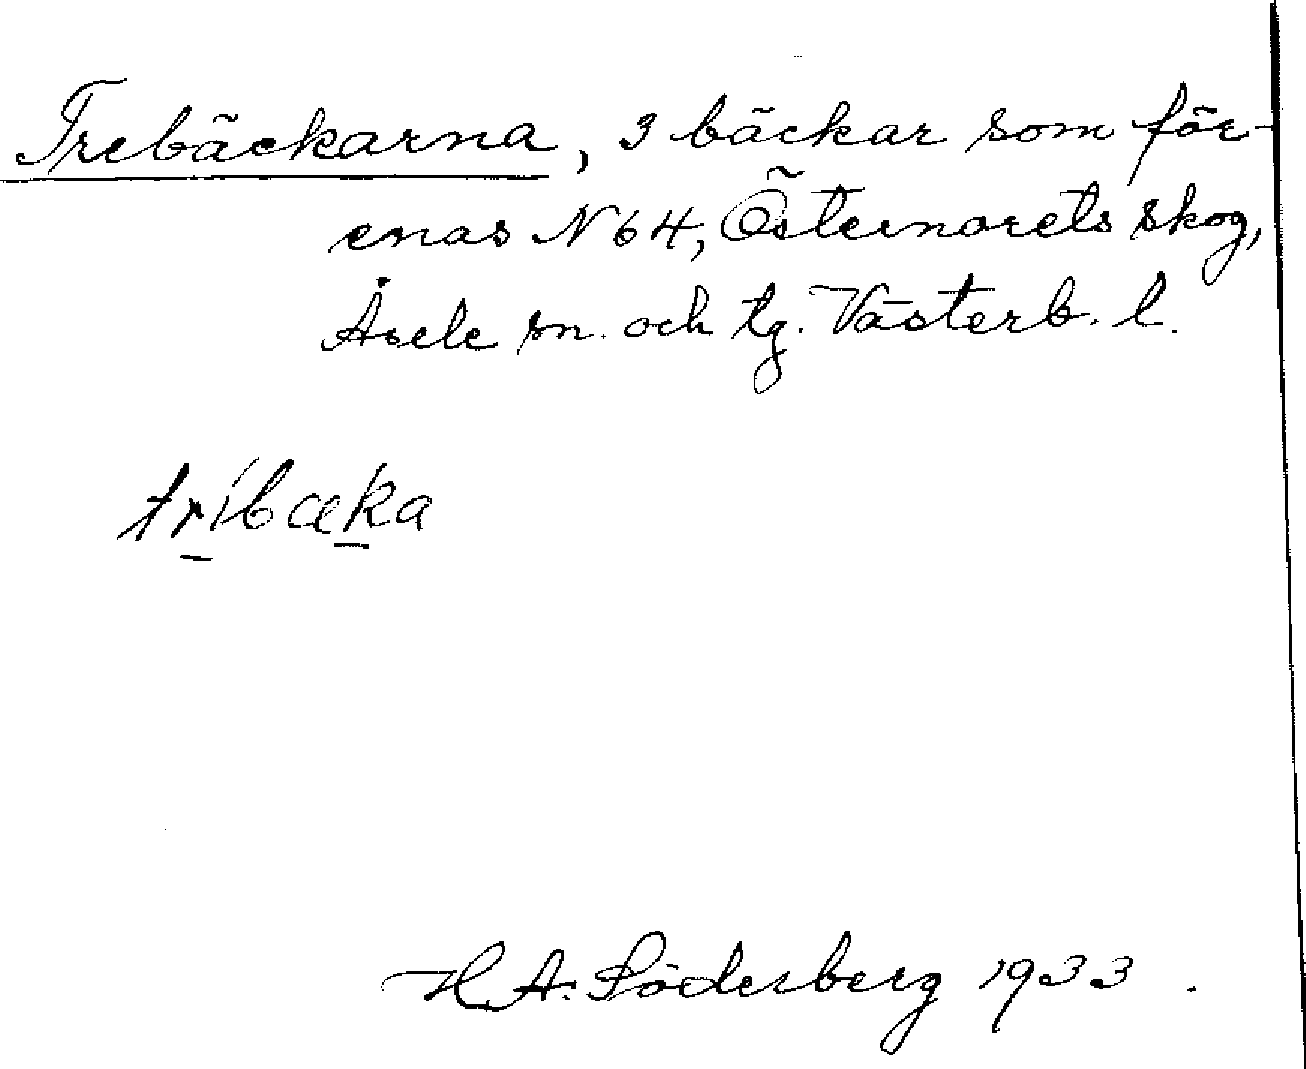 Trebäckarna, 3 bäckar som för-
enas N 64, Östernorets skog,
Åsele sn. och tg. Västerb. l.
tríbæka
H. A. Söderberg 1933.